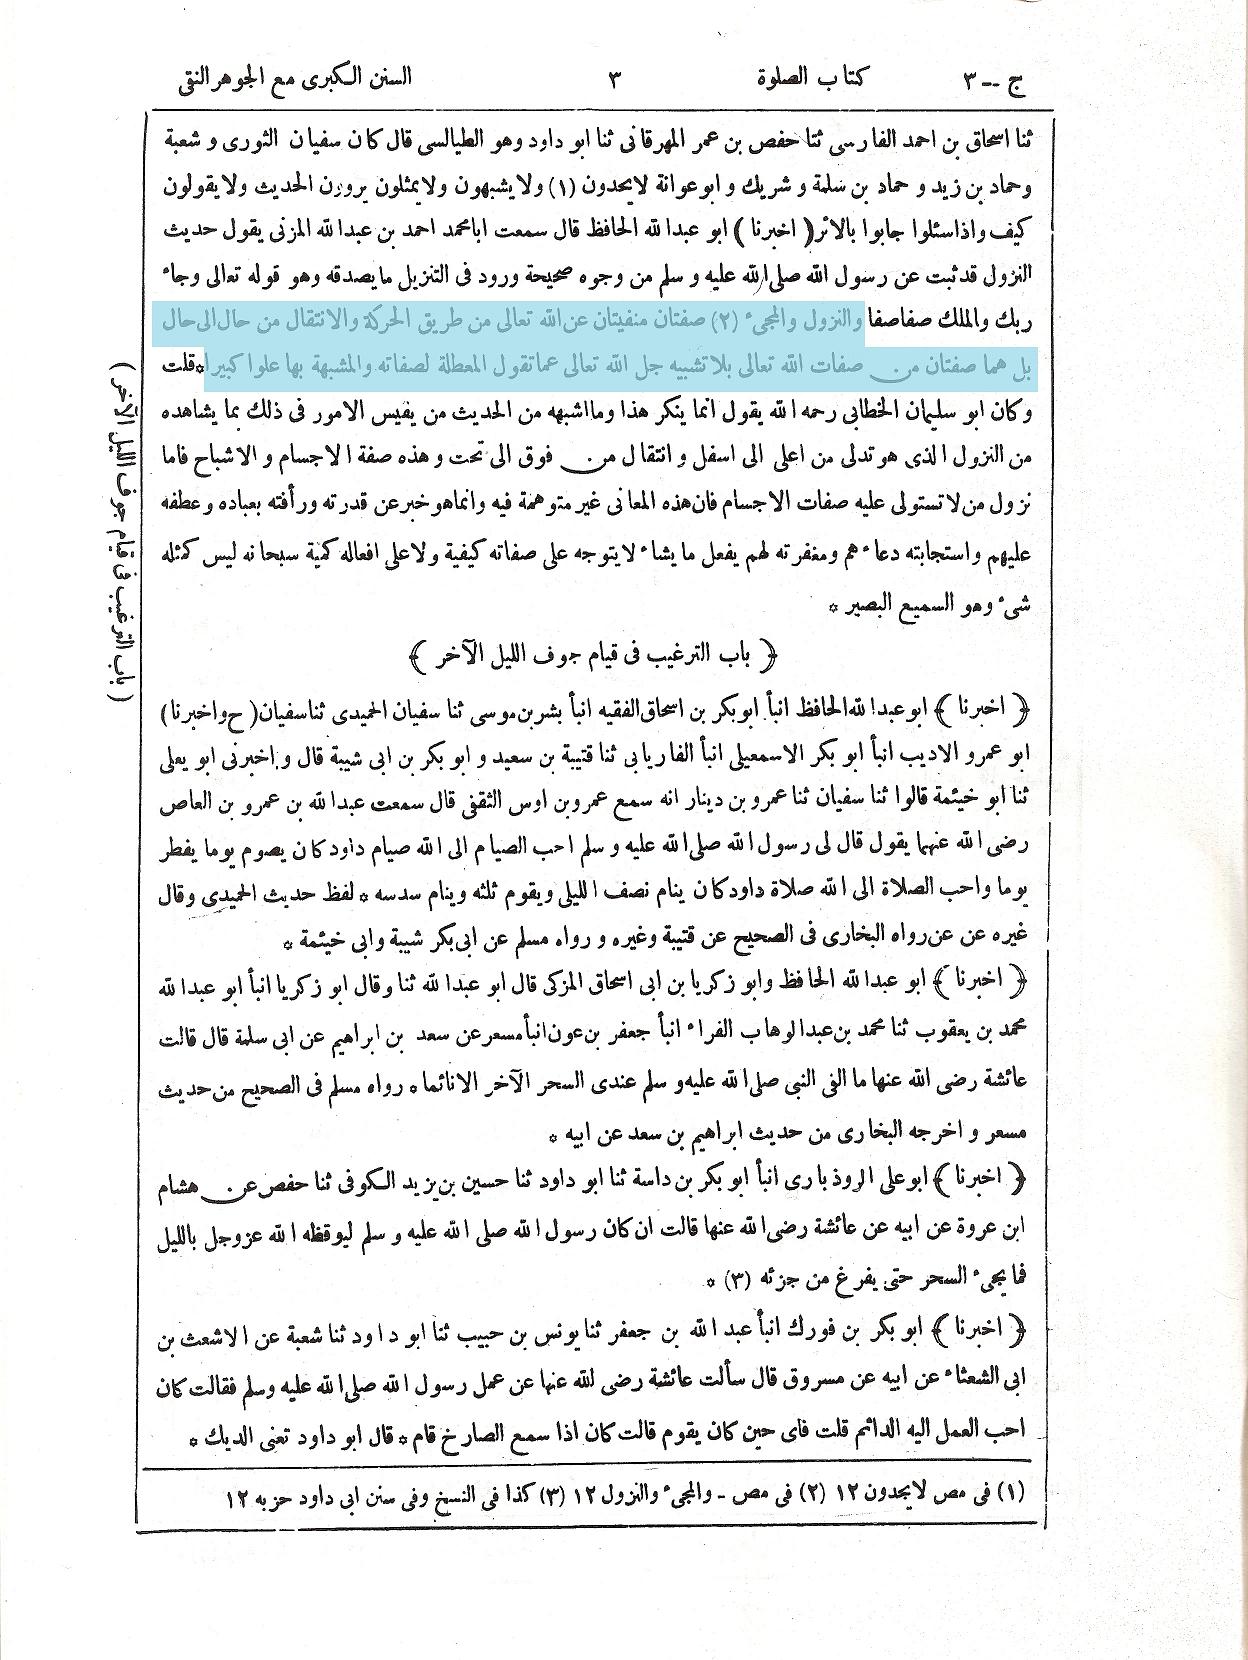 ج -- ٣ كتاب الصلوة ٣ السنن الكبرى مع الجوهر النقى
ثنا اسحاق بن احمد الفارسى ثنا حفص بن عمر المهرقانى ثنا ابو داود وهو الطيالسى قال كان سفيان الثورى و شعبة
وحماد بن زيد و حماد بن سلمة و شريك و ابو عوانة لايحدون (١) ولا يشبهون ولا يمثلون يروون الحديث ولا يقولون
كيف واذا سئلوا جابوا بالاثر ( اخبرنا ) ابو عبد الله الحافظ قال سمعت ابا محمد احمد بن عبد الله المزنى يقول حديث
النزول قد ثبت عن رسول الله صلى الله عليه و سلم من وجوه صحيحة ورود فى التنزيل ما يصدقه وهو قوله تعالى وجاء
ربك والملك صفا صفا والنزول والمجىء (٢) صفتان منفيتان عن الله تعالى من طريق الحركة والانتقال من حال الى حال
بل هما صفتان من صفات الله تعالى بلا تشبيه جل الله تعالى عما تقول المعطلة لصفاته والمشبهة بها علوا كبيرا * قلت
وكان ابو سليمان الخطابى رحمه الله يقول انما ينكر هذا وما اشبهه من الحديث من يقيس الامور فى ذلك بما يشاهده
من النزول الذى هو تدلى من اعلى الى اسفل و انتقال من فوق الى تحت و هذه صفة الاجسام و الاشباح فاما
نزول من لا تستولى عليه صفات الاجسام فان هذه المعانى غير متوهمة فيه وانما هو خبر عن قدرته ورأفته بعباده و عطفه
عليهم و استجابته دعاءهم ومغفرته لهم يفعل ما يشاء لا يتوجه على صفاته كيفية ولا على افعاله كمية سبحانه ليس كمثله
شىء وهو السميع البصير *
﴿ باب الترغيب فى قيام جوف الليل الآخر ﴾
( باب الترغيب فى قيام جوف الليل الآخر )
﴿ اخبرنا ﴾ ابو عبد الله الحافظ انبأ ابو بكر بن اسحاق الفقيه انبأ بشر بن موسى ثنا سفيان الحميدى ثنا سفيان ( ح واخبرنا )
ابو عمرو الاديب انبأ ابو بكر الاسمعيلى انبأ الفاريابى ثنا قتيبة بن سعيد و ابو بكر بن ابى شيبة قال و اخبرنى ابو يعلى
ثنا ابو خيثمة قالوا ثنا سفيان ثنا عمرو بن دينار انه سمع عمرو بن اوس الثقفى قال سمعت عبد الله بن عمرو بن العاص
رضى الله عنهما يقول قال لى رسول الله صلى الله عليه و سلم احب الصيام الى الله صيام داود كان يصوم يوما يفطر
يوما واحب الصلاة الى الله صلاة داود كان ينام نصف الليل ويقوم ثلثه وينام سدسه * لفظ حديث الحميدى وقال
غيره عن عن رواه البخارى فى الصحيح عن قتيبة وغيره و رواه مسلم عن ابى بكر شيبة وابى خيثمة *
﴿ اخبرنا ﴾ ابو عبد الله الحافظ وابو زكريا بن ابى اسحاق المزكى قال ابو عبد الله ثنا وقال ابو زكريا انبأ ابو عبد الله
محمد بن يعقوب ثنا محمد بن عبد الوهاب الفراء انبأ جعفر بن عون انبأ مسعر عن سعد بن ابراهيم عن ابى سلمة قال قالت
عائشة رضى الله عنها ما الفى النبى صلى الله عليه و سلم عندى السحر الآخر الا نائما * رواه مسلم فى الصحيح من حديث
مسعر و اخرجه البخارى من حديث ابراهيم بن سعد عن ابيه *
﴿ اخبرنا ﴾ ابو على الروذبارى انبأ ابو بكر بن داسة ثنا ابو داود ثنا حسين بن يزيد الكوفى ثنا حفص عن هشام
ابن عروة عن ابيه عن عائشة رضى الله عنها قالت ان كان رسول الله صلى الله عليه و سلم ليوقظه الله عز وجل بالليل
فما يجىء السحر حتى يفرغ من جزئه (٣) *
﴿ اخبرنا ﴾ ابو بكر بن فورك انبأ عبد الله بن جعفر ثنا يونس بن حبيب ثنا ابو داود ثنا شعبة عن الاشعث بن
ابى الشعثاء عن ابيه عن مسروق قال سألت عائشة رضى الله عنها عن عمل رسول الله صلى الله عليه وسلم فقالت كان
احب العمل اليه الدائم قلت فاى حين كان يقوم قالت كان اذا سمع الصارخ قام * قال ابو داود تعنى الديك *
(١) فى مص لايجدون ١٢ (٢) فى مص - والمجىء والنزول ١٢ (٣) كذا فى النسخ وفى سنن ابى داود حزبه ١٢